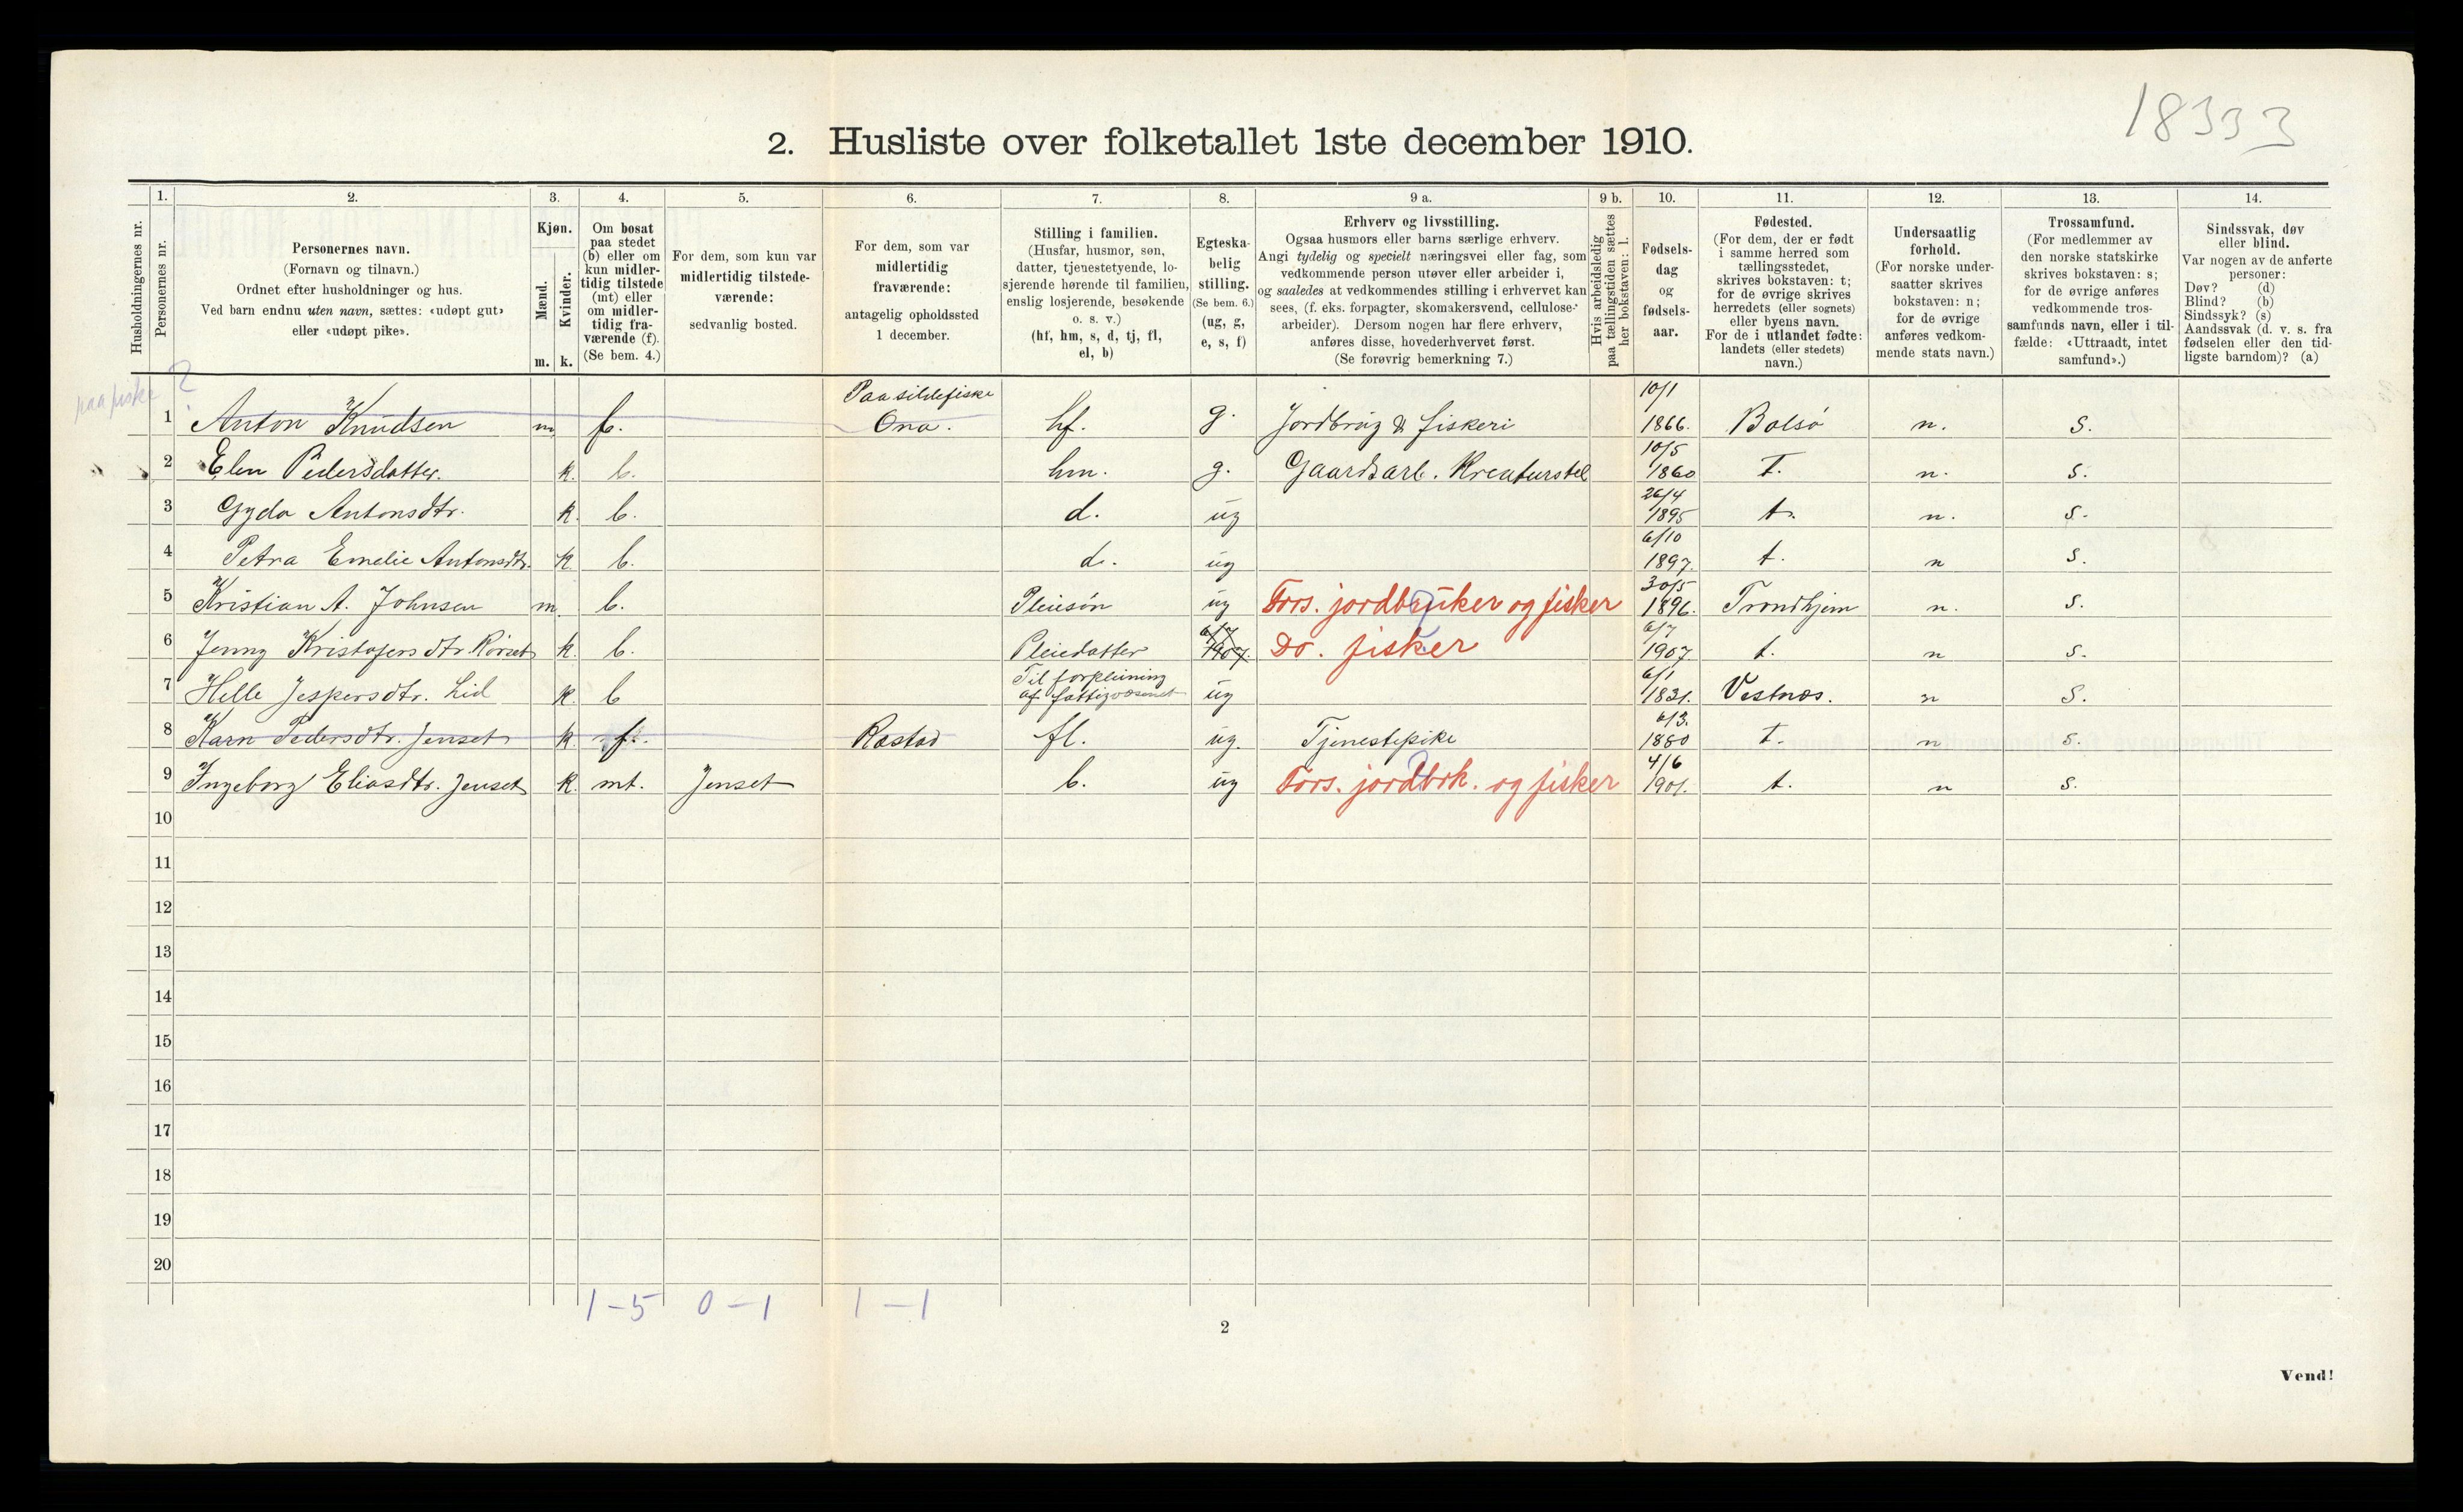 18333
2. Husliste over folketallet 1ste december 1910.
1. 2. 3. 4. 5. 6. 7. 8. 9 a. 9 b. 10. 11. 12. 13. 14.
Husholdningernes nr.
Personernes nr.
Personernes navn.
(Fornavn og tilnavn.)
Ordnet efter husholdninger og hus.
Ved barn endnu uten navn, sættes: «udøpt gut»
eller «udøpt pike».
Kjøn.
Mænd.
Kvinder.
m. k.
Om bosat
paa stedet
(b) eller om
kun midler-
tidig tilstede
(mt) eller
om midler-
tidig fra-
værende (f).
(Se bem. 4.)
For dem, som kun var
midlertidig tilstede-
værende:
sedvanlig bosted.
For dem, som var
midlertidig
fraværende:
antagelig opholdssted
1 december.
Stilling i familien.
(Husfar, husmor, søn,
datter, tjenestetyende, lo-
sjerende hørende til familien,
enslig losjerende, besøkende
o. s. v.)
(hf, hm, s, d, tj, fl,
el, b)
Egteska-
belig
stilling.
(Se bem. 6.)
(ug, g,
e, s, f)
Erhverv og livsstilling.
Ogsaa husmors eller barns særlige erhverv.
Angi tydelig og specielt næringsvei eller fag, som
vedkommende person utøver eller arbeider i,
og saaledes at vedkommendes stilling i erhvervet kan
sees, (f. eks. forpagter, skomakersvend, cellulose-
arbeider). Dersom nogen har flere erhverv,
anføres disse, hovederhvervet først.
(Se forøvrig bemerkning 7.)
Hvis arbeidsledig
paa tællingstiden sættes
her bokstaven: l.
Fødsels-
dag
og
fødsels-
aar.
Fødested.
(For dem, der er født
i samme herred som
tællingsstedet,
skrives bokstaven: t;
for de øvrige skrives
herredets (eller sognets)
eller byens navn.
For de i utlandet fødte:
landets (eller stedets)
navn.)
Undersaatlig
forhold.
(For norske under-
saatter skrives
bokstaven: n;
for de øvrige
anføres vedkom-
mende stats navn.)
Trossamfund.
(For medlemmer av
den norske statskirke
skrives bokstaven: s;
for de øvrige anføres
vedkommende tros-
samfunds navn, eller i til-
fælde: «Uttraadt, intet
samfund».)
Sindssvak, døv
eller blind.
Var nogen av de anførte
personer:
Døv? (d)
Blind? (b)
Sindssyk? (s)
Aandssvak (d. v. s. fra
fødselen eller den tid-
ligste barndom)? (a)
paa fiske ?
Paa sildefiske 10/1
1 Anton Knudsen m b. Ona. hf. g. Jordbrug & fiskeri 1866. Bolsø n. s.
10/5
2 Elen Pedersdatter. k. b. hm. g. Gaardsarb. Kreaturstel 1860 t. n. s.
26/4
3 Gyda Antonsdtr. k. b. d. ug 1895 t. n. s.
6/10
4 Petra Emelie Antonsdtr. k. b. d. ug 1897. t. n s.
30/5
5 Kristian A. Johnsen m. b. Pleiesøn ug Fors. jordbruker og fisker 1896. Trondhjem n. s.
6/7 6/7
6 Jenny Kristofersdtr. Rørset k. b. Pleiedatter 1907. Do. fisker 1907 t. n s.
Til forpleining 6/1
7 Helle Jespersdtr. Lid k b af fattigvæsenet ug 1831. Vestnes. n s.
6/3.
8 Karn Pedersdtr. Jenset k. f. Rastad fl. ug. Tjenestepike 1880 t. n s.
4/6
9 Ingeborg Eliasdtr. Jenset k. mt. Jenset b. ug Fors. jordbrk. og fisker 1901. t. n s.
10
11
12
13
14
15
16
17
18
19
20
1-5 0-1 1-1
2
Vend!